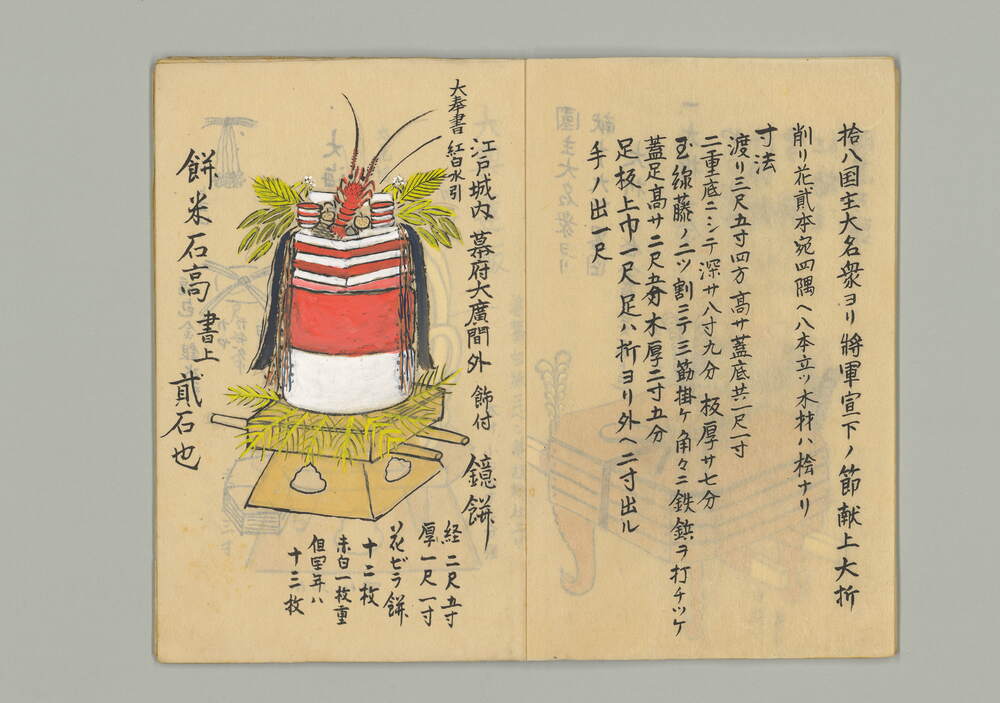 拾八国主大名衆ヨリ將軍宣下ノ節献上大折
削リ花貳本宛四隅ヘ八本立ツ木材ハ桧ナリ
寸法
渡リ三尺五寸四方高サ蓋底共一尺一寸
二重底ニシテ深サ八寸九分 板厚サ七分
玉縁藤ノ二ツ割ニテ三筋掛ケ角々ニ鉄鋲ヲ打チツケ
蓋足高サ二尺五分木厚二寸五分
足板上巾一尺足ハ折ヨリ外ヘ二寸出ル
手ノ出一尺
大奉書 紅白水引
江戸城内 幕府大廣間外 飾付
鏡餅
経二尺五寸
厚一尺一寸
花ビラ餅
十二枚
赤白一枚重
但閏年ハ
十三枚
餅米石高書上 貳石也